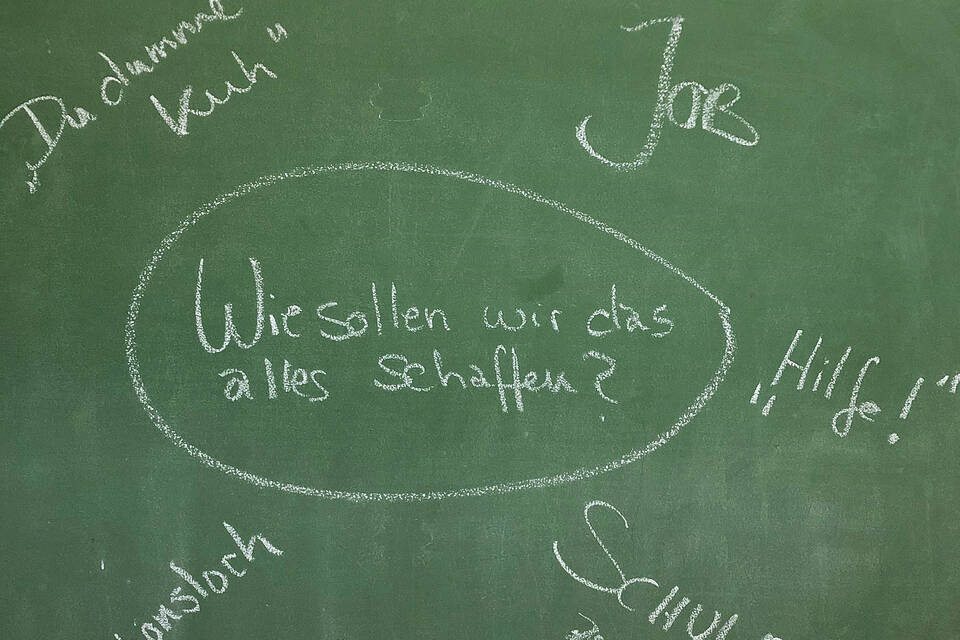 „Du dumme
Kuh"
Job
Wie sollen wir das
alles schaffen?
„Hilfe!"
onsloch
SCHUL